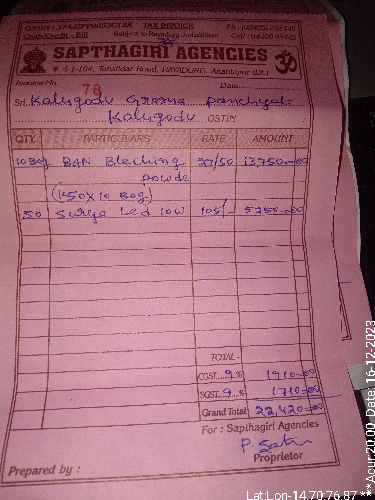 GSTIN : 37AJEPP9053C1ZK TAX INVOICE Ph : (08495) 252448
Cash/Credit - Bill Subject to Rayadurg Jurisdiction Cell : 94400 95445
SAPTHAGIRI AGENCIES
# 4-1-104, Tahsildar Road, RAYADURG, Anantapur (Dt.)
Invoice No. 78 Date:
Sri. Kalugodu Grama Panchyat
Kalugodu GSTIN
QTY. PARTICULARS RATE AMOUNT
10 Bag BAN Bleching 27/50 13,750=00
Powde
(50 X 10 Bag)
50 Surya Led 10w 105/- 5250=00
TOTAL
CGST...9...% 1710=00
SGST...9...% 1710=00
Grand Total 22,420=00
For : Sapthagiri Agencies
Proprietor
Prepared by :
Lat:Lon-14.70:76.87 **Acur:20.00, Date: 16-12-2023